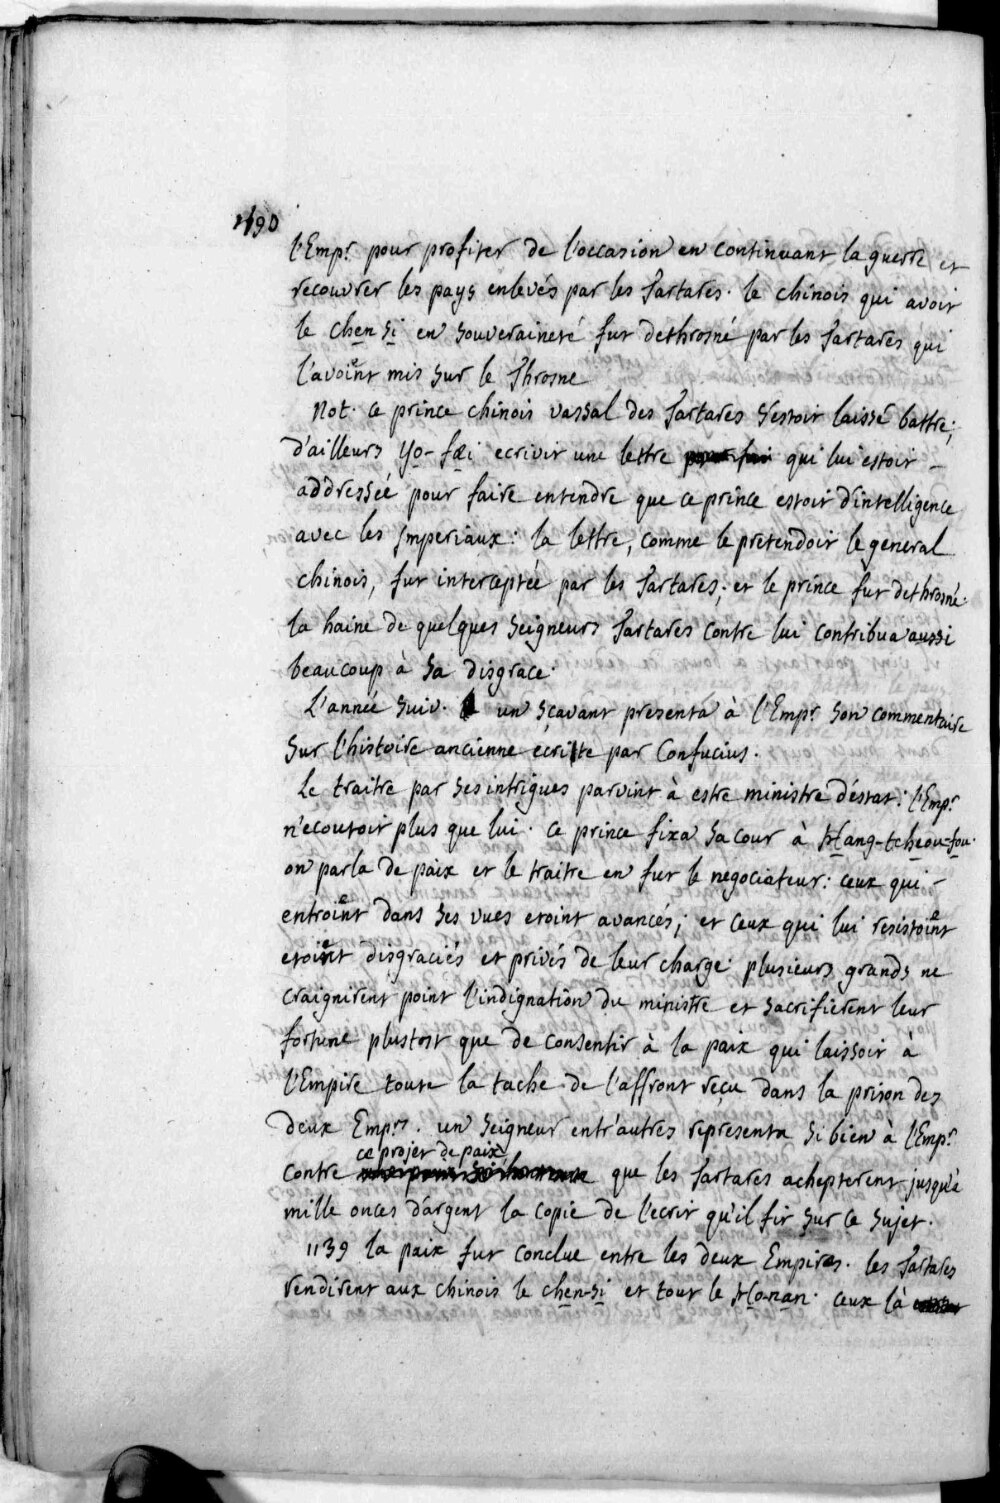 490
l'Emp.r pour profiter de l'occasion en continuant la guerre et
recouvrer les pays enlevés par les Tartares. le chinois qui avoit
le chen si en souveraineté fut dethrosné par les Tartares qui
l'avoient mis sur le Throsne
Not. ce prince chinois vassal des Tartares s'estoit laissé battre;
d'ailleurs Yo-fei ecrivit une lettre qui lui estoit
addressée pour faire entendre que ce prince estoit d'intelligence
avec les Imperiaux: la lettre, comme le pretendoit le general
chinois, fut interceptée par les Tartares; et le prince fut dethrosné.
la haine de quelques seigneurs Tartares contre lui contribua aussi
beaucoup à sa disgrace.
L'année suiv. un sçavant presenta à l'Emp.r son commentaire
sur l'histoire ancienne écrite par Confucius.
Le traitre par ses intrigues parvint à estre ministre d'éstat: l'Emp.r
n'ecoutoit plus que lui. ce prince fixa sa cour à Hang-tcheou-fou.
on parla de paix et le traitre en fut le negociateur: ceux qui
entroient dans ses vues etoint avancés; et ceux qui lui resistoient
etoient disgraciés et privés de leur charge. plusieurs grands ne
craignirent point l'indignation du ministre et sacrifierent leur
fortune plustost que de consentir à la paix qui laissoit à
l'Empire toute la tache de l'affront reçu dans la prison des
deux Emp.rs. un seigneur entr'autres representa si bien à l'Emp.r
contre ce projet de paix, que les Tartares achepterent jusqu'à
mille onces d'argent la copie de l'ecrit qu'il fit sur ce sujet.
1139 la paix fut conclue entre les deux Empires. les Tartares
rendirent aux chinois le chen-si et tout le Ho-nan. ceux là